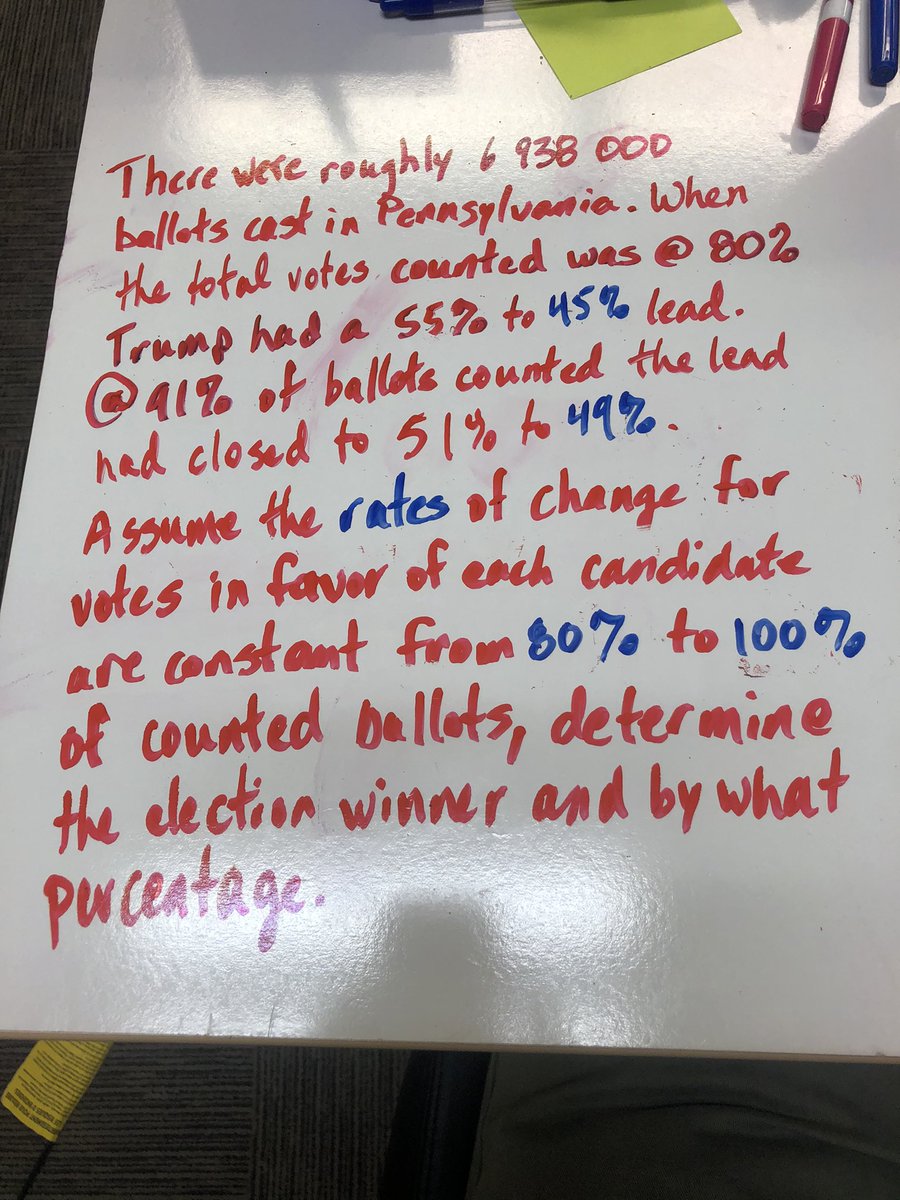 There were roughly 6 938 000
ballots cast in Pennsylvania. When
the total votes counted was @ 80%
Trump had a 55% to 45% lead.
@ 91% of ballots counted the lead
had closed to 51% to 49%.
Assume the rates of change for
votes in favor of each candidate
are constant from 80% to 100%
of counted ballots, determine
the election winner and by what
percentage.